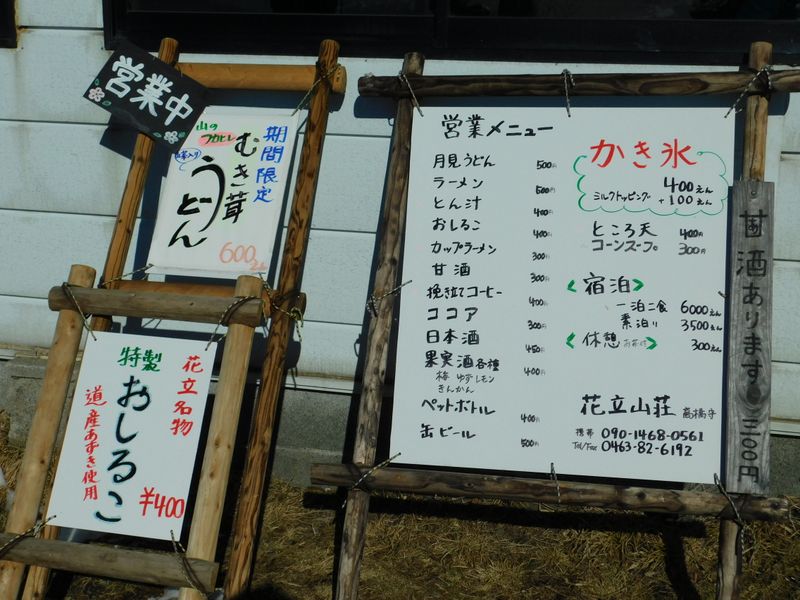 営業中
期間限定
むき茸
うどん
山の
フカヒレ
600えん
花立名物
特製
おしるこ
道産あずき使用
¥400
営業メニュー
月見うどん 500円
ラーメン 500円
とん汁 400円
おしるこ 400円
カップラーメン 300円
甘酒 300円
挽き立てコーヒー 400円
ココア 300円
日本酒 450円
果実酒各種 400円
梅 ゆず レモン
きんかん
ペットボトル 400円
缶ビール 500円
かき氷
400えん
ミルクトッピング +100えん
ところ天 400円
コーンスープ 300円
<宿泊>
一泊二食 6000えん
素泊り 3500えん
<休憩 お茶付> 300えん
花立山荘 高橋守
携帯 090-1468-0561
Tel/Fax 0463-82-6192
甘酒あります 三〇〇円